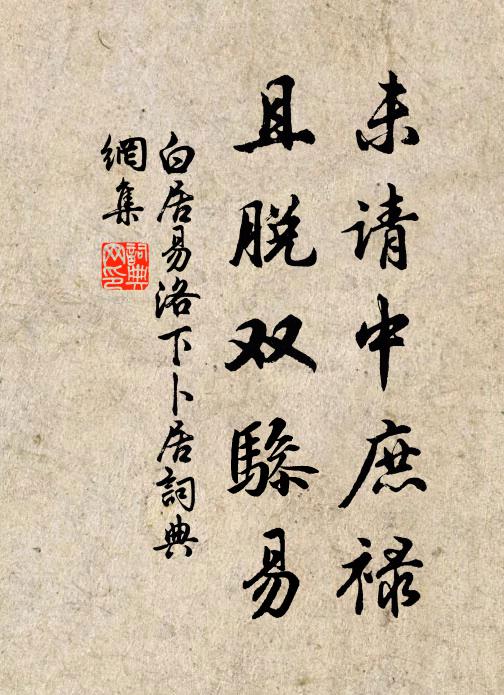 未请中庶禄
且脱双骖易
白居易洛下卜居詞典
網集
詞典
网印